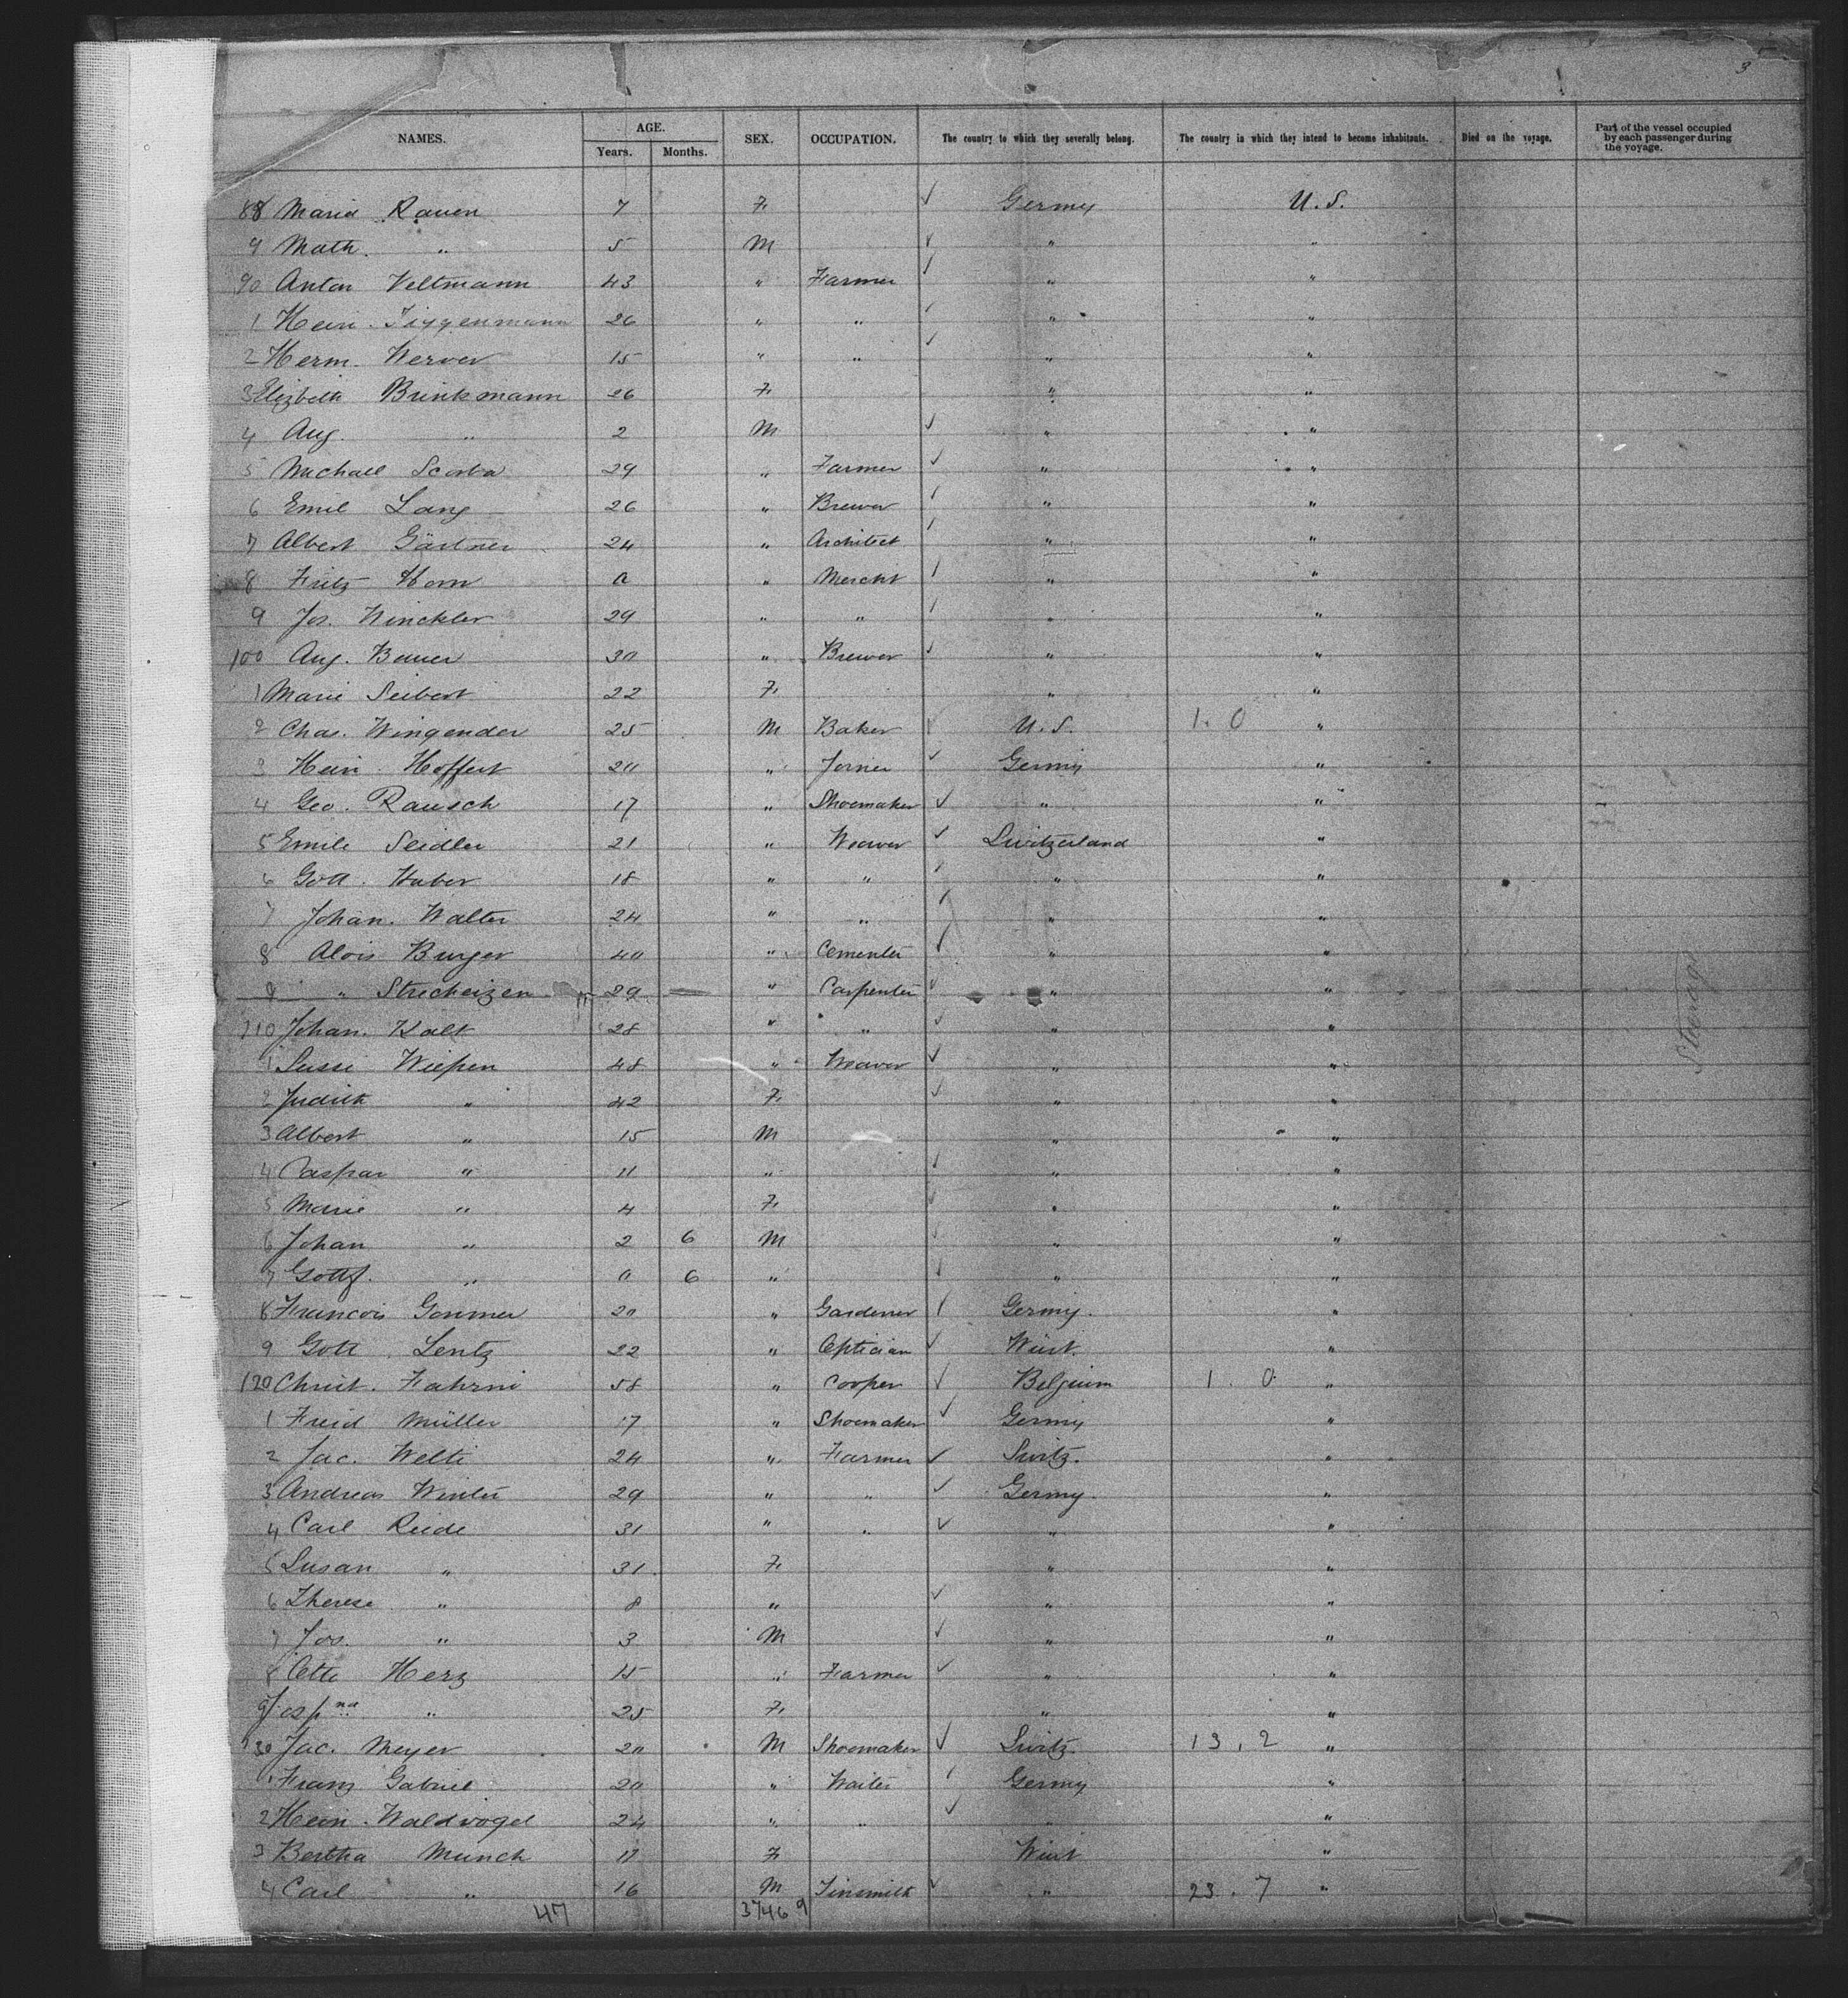 3
NAMES. AGE. SEX. OCCUPATION. The country to which they severally belong. The country in which they intend to become inhabitants. Died on the voyage. Part of the vessel occupied by each passenger during the voyage.
Years. Months.
88 Maria Rauen 7 F. ✓ Germy U.S.
9 Math. " 5 M ✓ " "
90 Anton Veltmann 43 " Farmer ✓ " "
1 Hein. Tiggenmann 26 " " ✓ " "
2 Herm. Werver 15 " " ✓ " "
3 Elizbeth Brinkmann 26 F. " "
4 Aug. " 2 M ✓ " "
5 Michael Scorba 29 " Farmer ✓ " "
6 Emil Lang 26 " Brewer ✓ " "
7 Albert Gärtner 24 " Architect ✓ " "
8 Fritz Horn a " Mercht ✓ " "
9 Jos. Winckler 29 " " ✓ " "
100 Aug. Bauer 30 " Brewer ✓ " "
1 Marie Seibert 22 F. " "
2 Chas. Wingender 25 M Baker ✓ U.S. 1. 0 "
3 Hein. Hoffert 20 " Joiner ✓ Germy "
4 Geo. Rausch 17 " Shoemaker ✓ " "
5 Emile Seidler 21 " Weaver ✓ Switzerland "
6 Gott. Huber 18 " " ✓ " "
7 Johan. Walter 24 " " ✓ " "
8 Alois Burger 40 " Cementer ✓ " "
9 " Stricheizen 29 " Carpenter ✓ " "
110 Johan. Kalt 28 " " ✓ " "
1 Sussi Wiepen 48 " Weaver ✓ " "
2 Judith " 42 F. ✓ " "
3 Albert " 15 M " "
4 Caspar " 11 " ✓ " "
5 Marie " 4 F. ✓ " "
6 Johan " 2 6 M ✓ " "
7 Gottf. " 0 6 " ✓ " "
8 Francois Gonmer 20 " Gardener ✓ Germy. "
9 Gott. Lentz 22 " Optician ✓ Würt. "
120 Christ. Fahrni 58 " Cooper ✓ Belgium 1. 0 "
1 Freid Müller 17 " Shoemaker ✓ Germy "
2 Jac. Welti 24 " Farmer ✓ Switz. "
3 Andreas Winter 29 " " ✓ Germy "
4 Carl Reide 31 " " ✓ " "
5 Susan " 31 F. " "
6 Therese " 8 " ✓ " "
7 Jos. " 3 M ✓ " "
8 Otto Herz 15 " Farmer ✓ " "
9 Jospna " 25 F. " "
130 Jac. Meyer 20 M Shoemaker ✓ Switz. 13. 2 "
1 Franz Gabriel 20 " Waiter ✓ Germy "
2 Hein. Waldvogel 24 " " ✓ " "
3 Bertha Munch 17 F Würt "
4 Carl " 16 M Tinsmith ✓ " 23. 7 "
Steerage
47 3746 9